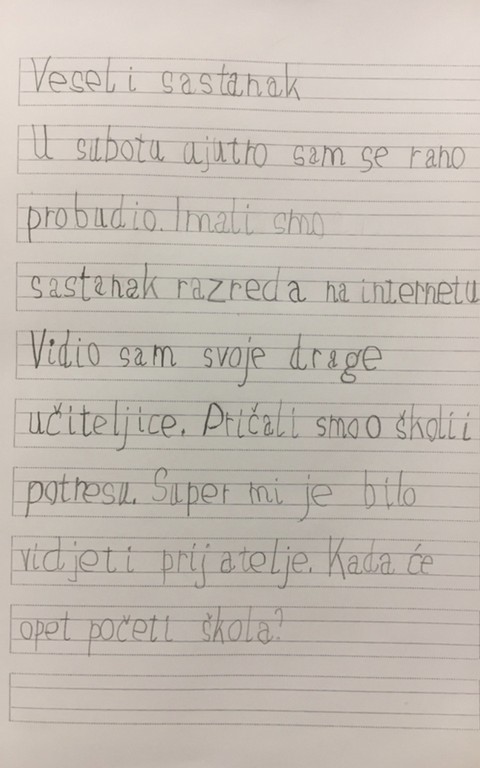 Veseli sastanak
U subotu ujutro sam se rano
probudio. Imali smo
sastanak razreda na internetu
Vidio sam svoje drage
učiteljice. Pričali smo o školi i
potresu. Super mi je bilo
vidjeti prijatelje. Kada će
opet početi škola?